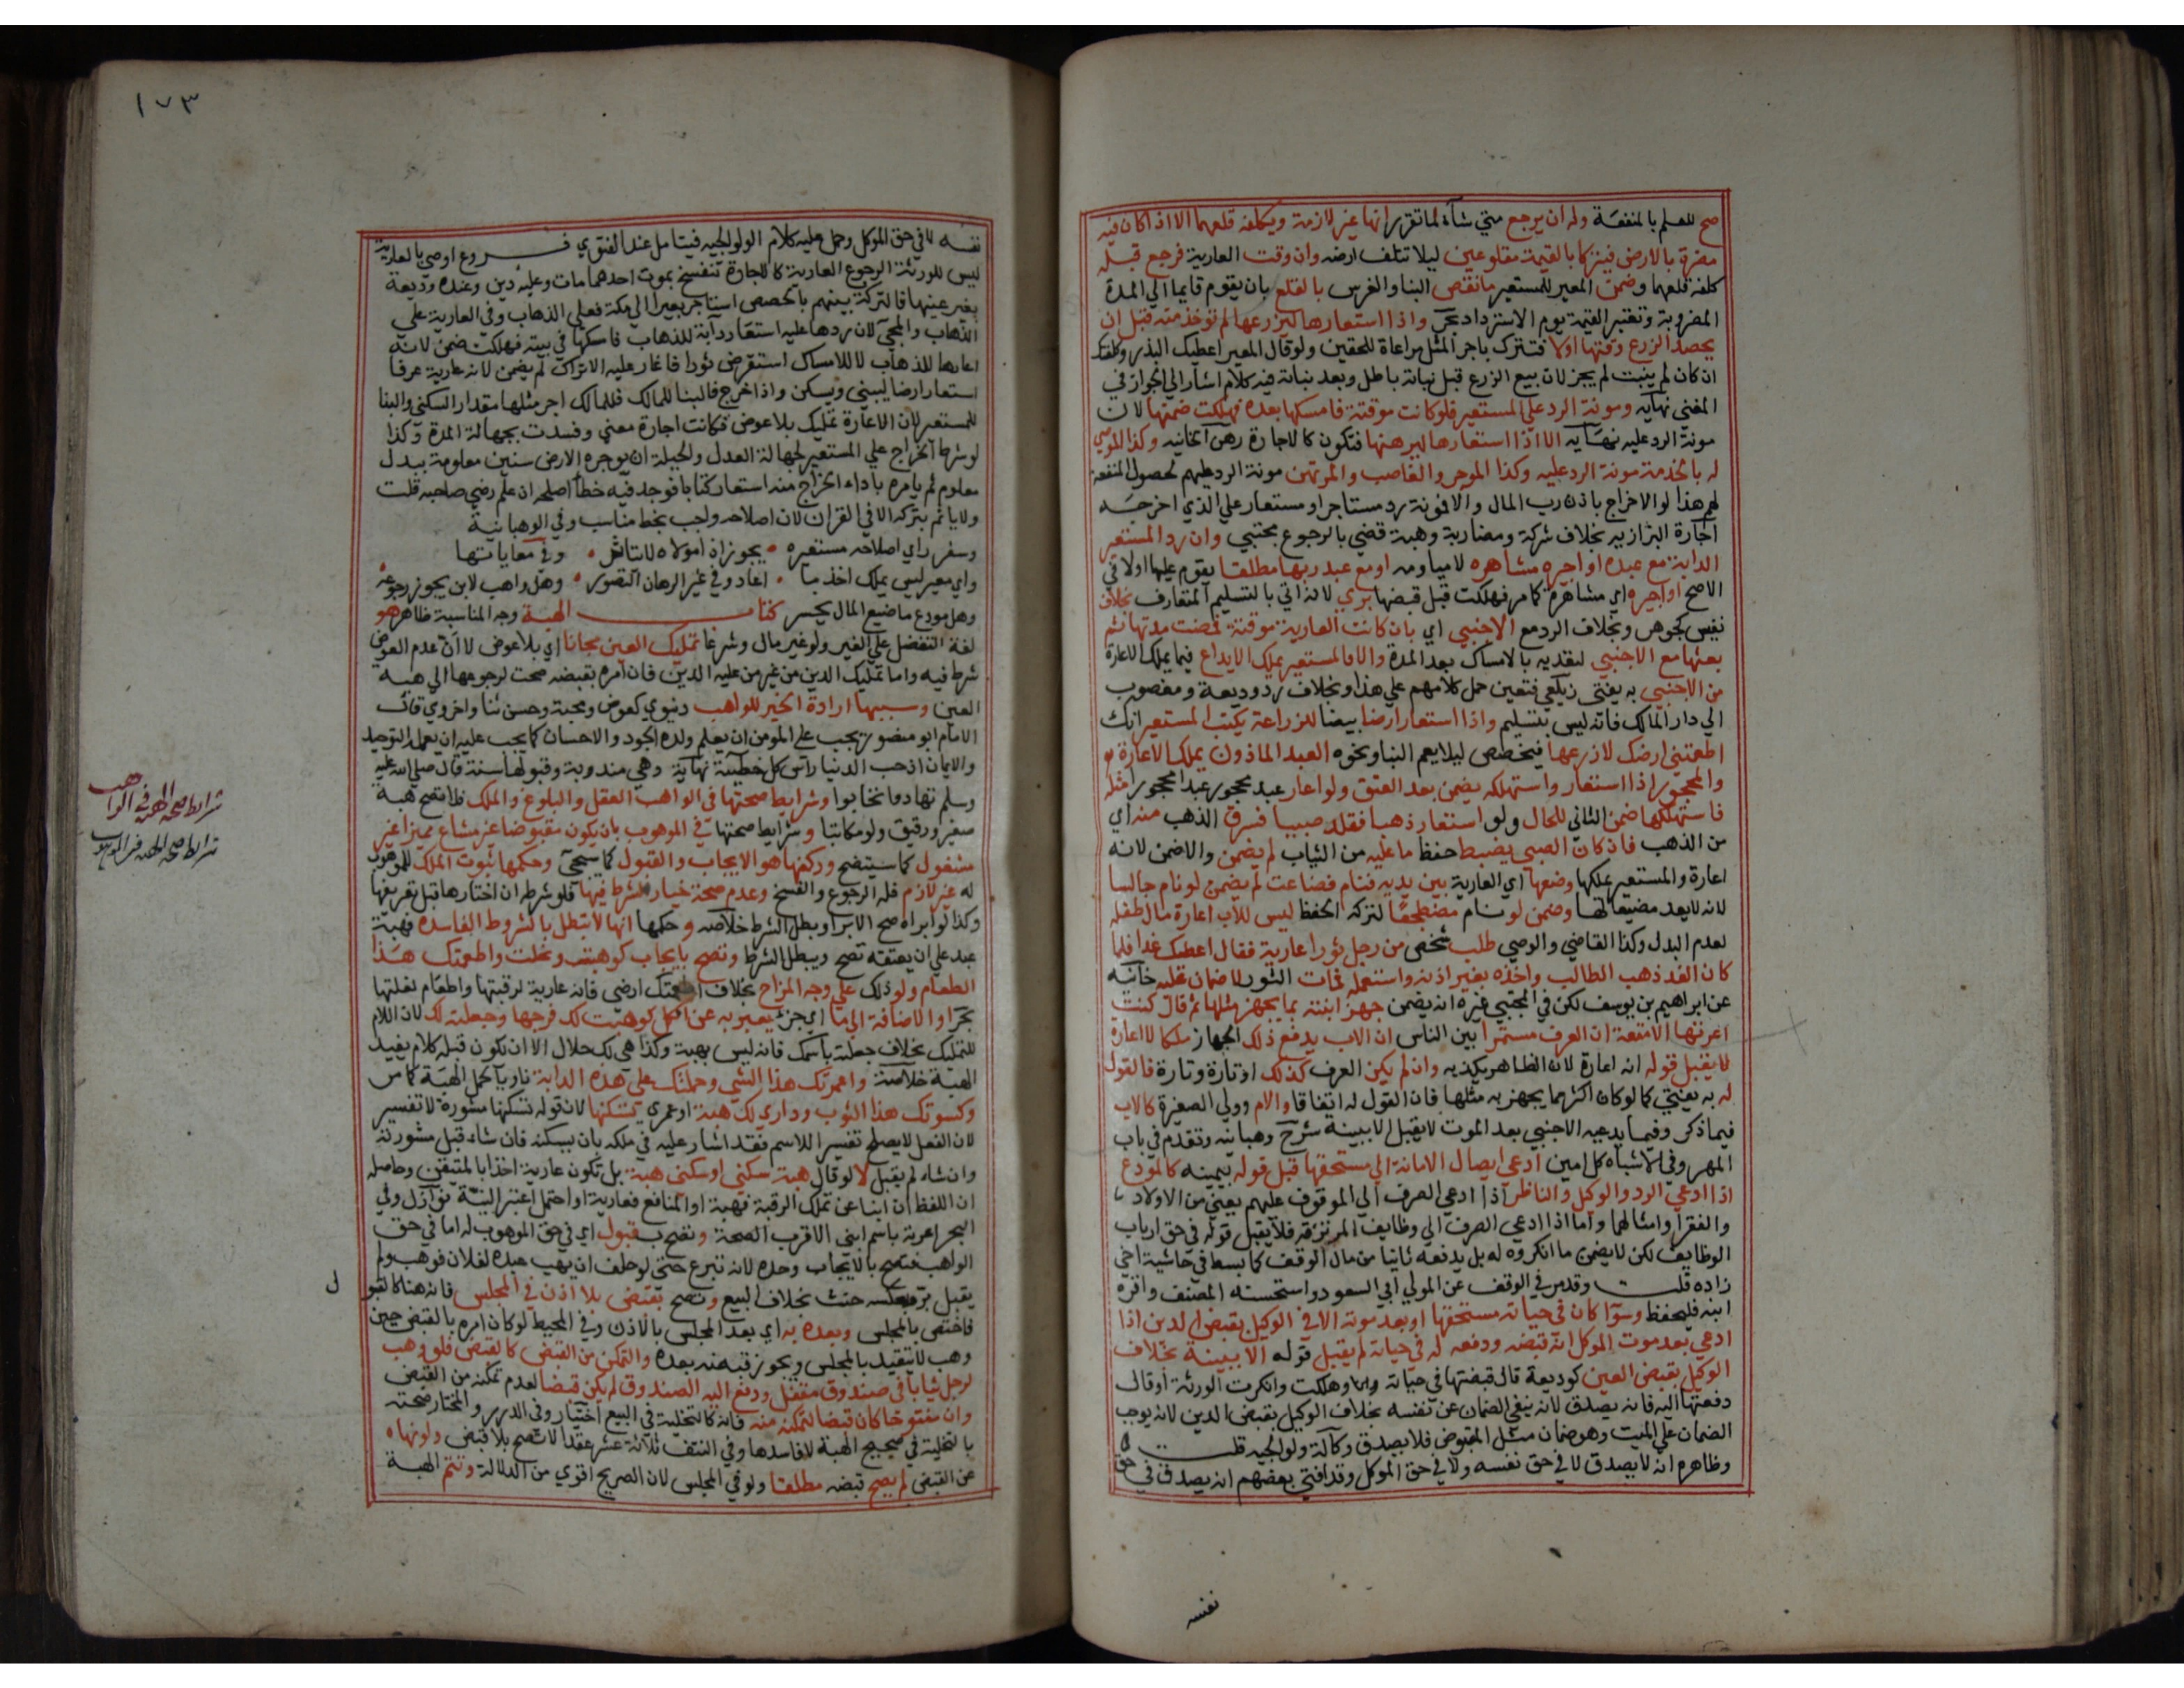 صح للعلم بالمنفعة وله ان يرجع متي شآء لما تقرر انها غير لازمة ويكلفه قلعهما الا اذا كان فيه
مضرة بالارض فيتركا بالقيمة مقلوعين ليلا تتلف ارضه وان وقت العارية فرجع قبله
كلفه قلعهما وضمن المعير للمستعير ما نقص البنا والغرس بالقلع بان يقوم قايما الي المدة
المضروبة وتعتبر القيمة يوم الاسترداد بحر واذا استعارها ليزرعها لم تؤخذ منه قبل ان
يحصد الزرع وقتها اولا فتترك باجر المثل مراعاة للحقين ولو قال المعير اعطيك البذر وكلفتك
ان كان لم ينبت لم يجز لان بيع الزرع قبل نباته باطل وبعد نباته فيه كلام اشار الي الجواز في
المغني نهاية ومونة الرد علي المستعير فلو كانت موقتة فامسكها بعده فهلكت ضمنها لان
مونة الرد عليه نهاية الا اذا استعارها ليرهنها فتكون كالاجارة رهن الخانيه وكذا الموصي
له بالخدمة مونة الرد عليه وكذا الموجر والغاصب والمرتهن مونة الرد عليهم لحصول المنفعة
لهم هذا لو الاخراج باذن رب المال والا فمونة رد مستاجر او مستعار علي الذي اخرجه
اجارة البزازيه بخلاف شركة ومضاربة وهبة قضي بالرجوع مجتبي وان رد المستعير
الدابة مع عبده او اجيره مشاهره لا مياومه او مع عبد ربها مطلقا يقوم عليها اولا في
الاصح او اجيره اي مشاهرة كما مر فهلكت قبل قبضها بري لانه اتي بالتسليم المتعارف بخلاف
نفيس كجوهر وبخلاف الرد مع الاجنبي اي بان كانت العارية موقتة فمضت مدتها ثم
بعثها مع الاجنبي لتعديه بالامساك بعد المدة والا فالمستعير يملك الايداع فيما يملك الاعارة
من الاجنبي به يفتي زيلعي فتعين حمل كلامهم علي هذا وبخلاف رد وديعة ومغصوب
الي دار المالك فانه ليس بتسليم واذا استعار ارضا بيضا للزراعة يكتب المستعير انك
اطعمتني ارضك لازرعها فيخصص ليلا يعم البنا ونحوه العبد الماذون يملك الاعارة
والمحجور اذا استعار واستهلكه يضمن بعد العتق ولو اعار عبد محجور عبدا محجورا مثله
فاستهلكها ضمن الثاني للحال ولو استعار ذهبا فقلد صبيا فسرق الذهب منه اي
من الذهب فان كان الصبي يضبط حفظ ما عليه من الثياب لم يضمن والا ضمن لانه
اعارة والمستعير يملكها وضعها اي العارية بين يديه فنام فضاعت لم يضمن لو نام جالسا
لانه لا يعد مضيعا لها وضمن لو نام مضطجعا لتركه الحفظ ليس للاب اعارة مال طفله
لعدم البدل وكذا القاضي والوصي طلب شخص من رجل ثورا عارية فقال اعطيك غدا فلما
كان الغد ذهب الطالب واخذه بغير اذنه واستعمله فمات الثور لا ضمان عليه خانيه
عن ابراهيم بن يوسف لكن في المجتبي غيره انه يضمن جهز ابنته بما يجهز مثلها ثم قال كنت
اعرتها الامتعة ان العرف مستمرا بين الناس ان الاب يدفع ذلك الجهاز ملكا لا اعارة
لا يقبل قوله انه اعارة لان الظاهر يكذبه وان لم يكن العرف كذلك او تارة وتارة فالقول
له به يفتي كما لو كان اكثر مما يجهز به مثلها فان القول له اتفاقا والام وولي الصغيرة كالاب
فيما ذكر وفيما يدعيه الاجنبي بعد الموت لا يقبل الا ببينة شرح وهبانيه وتقدم في باب
المهر وفي الاشباه كل امين ادعي ايصال الامانة الي مستحقها قبل قوله بيمينه كالمودع
اذا ادعي الرد والوكيل والناظر اذا ادعي الصرف الي الموقوف عليهم يعني من الاولاد
والفقرا وامثالهما واما اذا ادعي الصرف الي وظايف المرتزقه فلا يقبل قوله في حق ارباب
الوظايف لكن لا يضمن ما انكروه له بل يدفعه ثانيا من مال الوقف كما بسط في حاشية اخي
زاده قلت وقد مر في الوقف عن المولي ابي السعود واستحسنه المصنف واقره
ابنه فليحفظ وسوآ كان في حياة مستحقها او بعد موته الا في الوكيل بقبض الدين اذا
ادعي بعد موت الموكل انه قبضه ودفعه له في حياته لم يقبل قوله الا ببينة بخلاف
الوكيل بقبض العين كوديعة قال قبضتها في حياته وهلكت وانكرت الورثة او قال
دفعتها اليه فانه يصدق لانه ينفي الضمان عن نفسه بخلاف الوكيل بقبض الدين لانه يوجب
الضمان علي الميت وهو ضمان مثل المقبوض فلا يصدق وكالة ولوالجيه قلت
وظاهره انه لا يصدق لا في حق نفسه ولا في حق الموكل وقد افتي بعضهم انه يصدق في حق
نفسه
١٧٣
نفسه لا في حق الموكل وحمل عليه كلام الولوالجيه فيتامل عند الفتوي فروع اوصي بالعارية
ليس للورثة الرجوع العارية كالاجارة تنفسخ بموت احدهما مات وعليه دين وعنده وديعة
بغير عينها فالتركة بينهم بالحصص استاجر بعيرا الي مكة فعلي الذهاب وفي العارية علي
الذهاب والمجي لان ردها عليه استعار دابة للذهاب فامسكها في بيته فهلكت ضمن لانه
اعارها للذهاب لا للامساك استقرض ثورا فاغار عليه الاتراك لم يضمن لانه عارية عرفا
استعار ارضا ليبني ويسكن واذا خرج فالبنا للمالك فللمالك اجر مثلها مقدار السكني والبنا
للمستعير لان الاعارة تمليك بلا عوض فكانت اجارة معني وفسدت بجهالة المدة وكذا
لو شرط الخراج علي المستعير لجهالة البدل والحيلة ان يوجره الارض سنين معلومة ببدل
معلوم ثم يامره باداء الخراج منه استعار كتابا فوجد فيه خطأ اصلحه ان علم رضي صاحبه قلت
ولا ياثم بتركه الا في القران لان اصلاحه واجب بخط مناسب وفي الوهبانية
وسفر راي اصلاحه مستعيره • يجوز اذا مولاه لا يتاثر • وفي معاياتها
واي معير ليس يملك اخذ ما • اعار وفي غير الرهان التصور • وهل واهب لابن يجوز رجوعه
وهل مودع ما ضيع المال يخسر كتاب الهبة وجه المناسبة ظاهر هو
لغة التفضل علي الغير ولو غير مال وشرعا تمليك العين مجانا اي بلا عوض لا ان عدم العوض
شرط فيه واما تمليك الدين من غير من عليه الدين فان امره بقبضه صحت لرجوعها الي هبة
العين وسببها ارادة الخير للواهب دنيوي كعوض ومحبة وحسن ثنا واخروي قال
الامام ابو منصور يجب علي المومن ان يعلم ولده الجود والاحسان كما يجب عليه ان يعلمه التوحيد
والايمان اذ حب الدنيا راس كل خطيئة نهاية وهي مندوبة وقبولها سنة قال صلي الله عليه
وسلم تهادوا تحابوا وشرايط صحتها في الواهب العقل والبلوغ والملك فلا تصح هبة
صغير ورقيق ولو مكاتبا وشرايط صحتها في الموهوب بان يكون مقبوضا غير مشاع مميزا غير
مشغول كما سيتضح وركنها هو الايجاب والقبول كما سيجي وحكمها ثبوت الملك للموهوب
له غير لازم فله الرجوع والفسخ وعدم صحة خيار الشرط فيها فلو شرطه ان اختارها قبل تفرقها
وكذا لو ابراه صح الابرا وبطل الشرط خلاصه وحكمها انها لا تبطل بالشروط الفاسده فهبة
عبد علي ان يعتقه تصح ويبطل الشرط وتصح بايجاب كوهبت ونحلت واطعمتك هذا
الطعام ولو ذلك علي وجه المزاح بخلاف اطعمتك ارضي فانه عارية لرقبتها واطعام لغلتها
بحر او الاضافة الي ما اي جزء يعبر به عن الكل كوهبت لك فرجها وجعلته لك لان اللام
للتمليك بخلاف جعلته باسمك فانه ليس بهبة وكذا هي لك حلال الا ان يكون قبله كلام يفيد
الهبة خلاصة واعمرتك هذا الشي وحملتك علي هذه الدابة ناويا بالحمل الهبة كما مر
وكسوتك هذا الثوب وداري لك هبة او عمري تسكنها لان قوله تسكنها مشورة لا تفسير
لان الفعل لا يصلح تفسيرا للاسم فقد اشار عليه في ملكه بان يسكنه فان شاء قبل مشورته
وان شاء لم يقبل لا لو قال هبة سكني او سكني هبة بل تكون عارية اخذا بالمتيقن وحاصله
ان اللفظ ان انبا عن تملك الرقبة فهبة او المنافع فعارية او احتمل اعتبر النية نوازل وفي
البحر اغرسه باسم ابني الاقرب الصحة وتصح بقبول اي في حق الموهوب له اما في حق
الواهب فتصح بالايجاب وحده لانه تبرع حتي لو حلف ان يهب عبده لفلان فوهب ولم
يقبل بر وبعكسه حنث بخلاف البيع وتصح بقبض بلا اذن في المجلس فانه هنا كالقبول
فاختص بالمجلس وبعده به اي بعد المجلس بالاذن وفي المحيط لو كان امره بالقبض حين
وهبه لا يتقيد بالمجلس ويجوز قبضه بعده والتمكن من القبض كالقبض فلو وهب
لرجل ثيابا في صندوق مقفل ودفع اليه الصندوق لم يكن قبضا لعدم تمكنه من القبض
وان مفتوحا كان قبضا لتمكنه منه فانه كالتخلية في البيع اختيار وفي الدرر والمختار صحته
بالتخلية في صحيح الهبة لا فاسدها وفي النتف ثلاثة عشر عقدا لا تصح بلا قبض ولو نهاه
عن القبض لم يصح قبضه مطلقا ولو في المجلس لان الصريح اقوي من الدلالة وتتم الهبة
شرايط صحة الهبة في الواهب
شرايط صحة الهبة في الموهوب